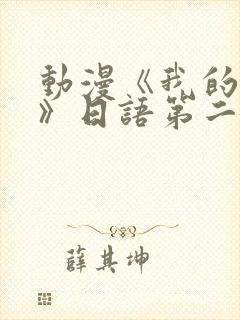 動漫《我的
》日語第二
薛其坤